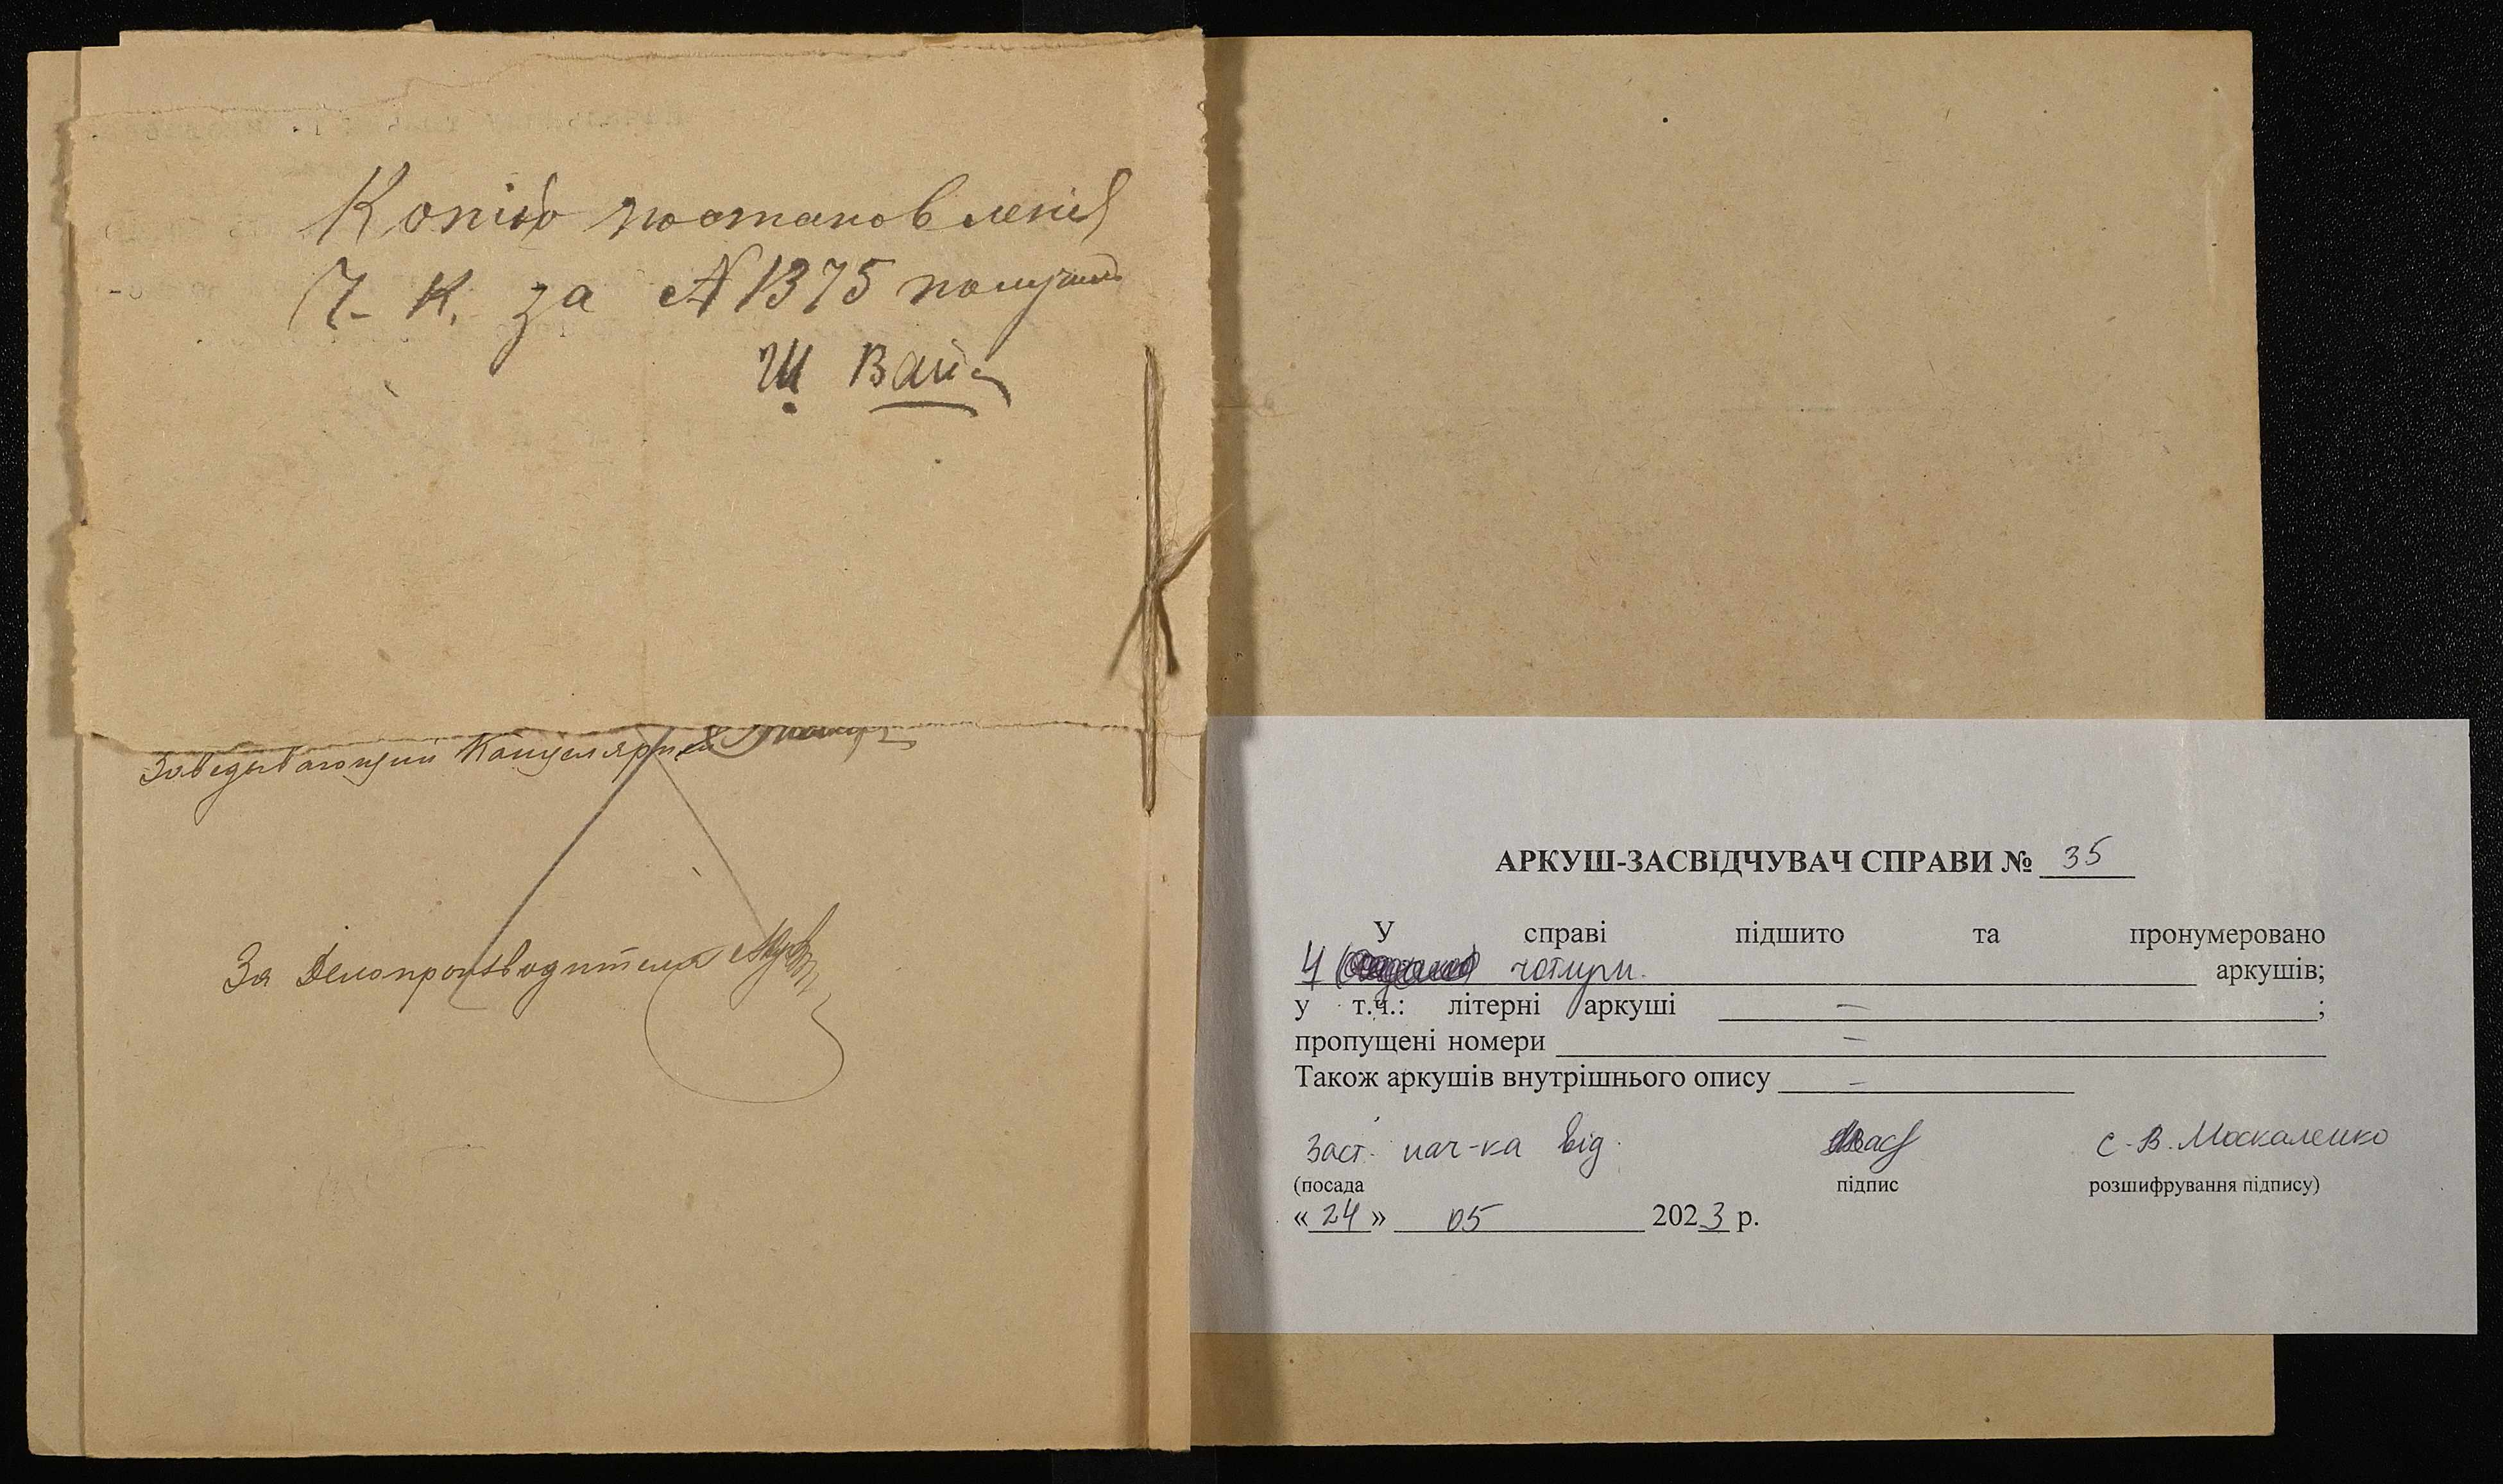 Копію постановленія
Ч. К. за № 1375 получил
Ш Вай
Заведывающий Канцелярией
За Делопроизводителя
АРКУШ-ЗАСВІДЧУВАЧ СПРАВИ № 35
У справі підшито та пронумеровано
4 чотири. аркушів;
у т.ч.: літерні аркуші – ;
пропущені номери –
Також аркушів внутрішнього опису –
Заст. нач-ка від. С. В. Москаленко
(посада підпис розшифрування підпису)
« 24 » 05 2023 р.